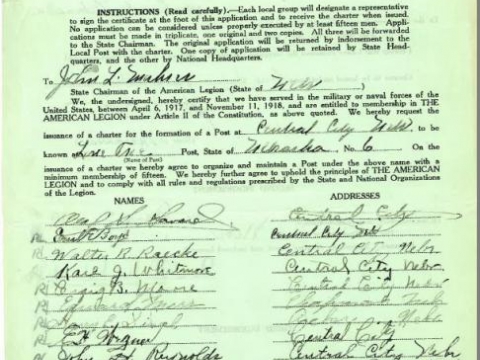 INSTRUCTIONS (Read carefully).—Each local group will designate a representative
to sign the certificate at the foot of this application and to receive the charter when issued.
No application can be considered unless properly executed by at least fifteen men. Appli-
cations must be made in triplicate, one original and two copies. All three will be forwarded
to the State Chairman. The original application will be returned by indorsement to the
Local Post with the charter. One copy of application will be retained by State Head-
quarters, and the other by National Headquarters.
To John L.
State Chairman of the American Legion (State of Neb
We, the undersigned, hereby certify that we have served in the military or naval forces of the
United States, between April 6, 1917, and November 11, 1918, and are entitled to membership in THE
AMERICAN LEGION under Article II of the Constitution, as above quoted. We hereby request the
issuance of a charter for the formation of a Post at Central City Neb. to be
known Lone Tree Post, State of Nebraska, No. 6 On the
(Name of Post)
issuance of a charter we hereby agree to organize and maintain a Post under the above name with a
minimum membership of fifteen. We hereby further agree to uphold the principles of THE AMERICAN
LEGION and to comply with all rules and regulations prescribed by the State and National Organizations
of the Legion.
NAMES ADDRESSES
Central City
Boyd Central City Neb
Walter R. Raecke Central City Nebr
Karl J. Whitmore Central City Nebr
Craig B. Monroe Central City Nebr
Central City
John H. Reynolds Central City Nebr